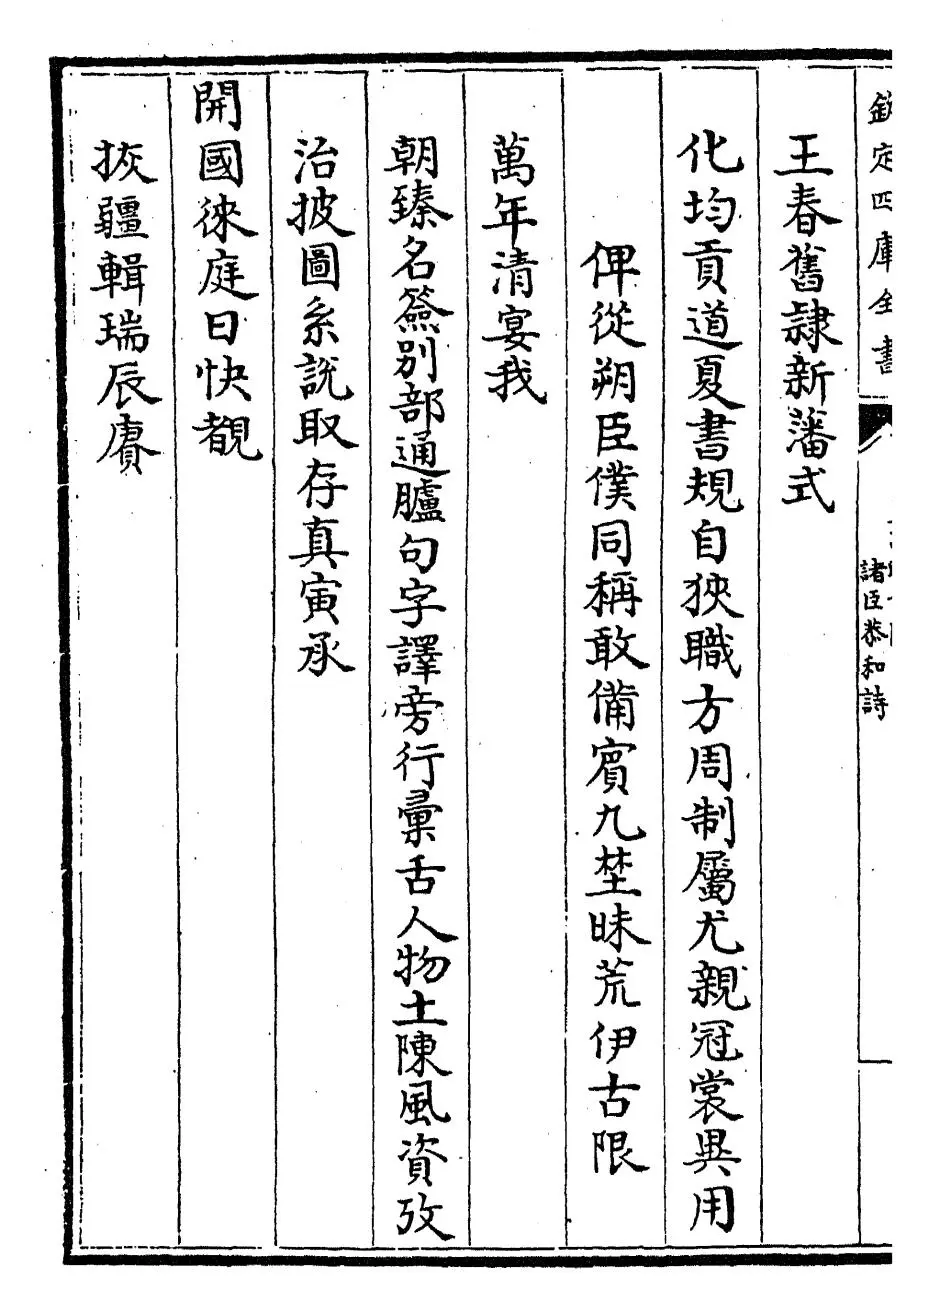 欽定四庫全書
諸臣恭和詩
王春舊隷新藩式
化均貢道夏書規自狹職方周制屬尤親冠裳異用
俾從朔臣僕同稱敢備賓九埜昧荒伊古限
萬年清宴我
朝臻名籤别部通臚句字譯旁行彚舌人物土陳風資攷
治披圖系説取存真寅承
開國徠庭日快覩
挍疆輯瑞辰賡